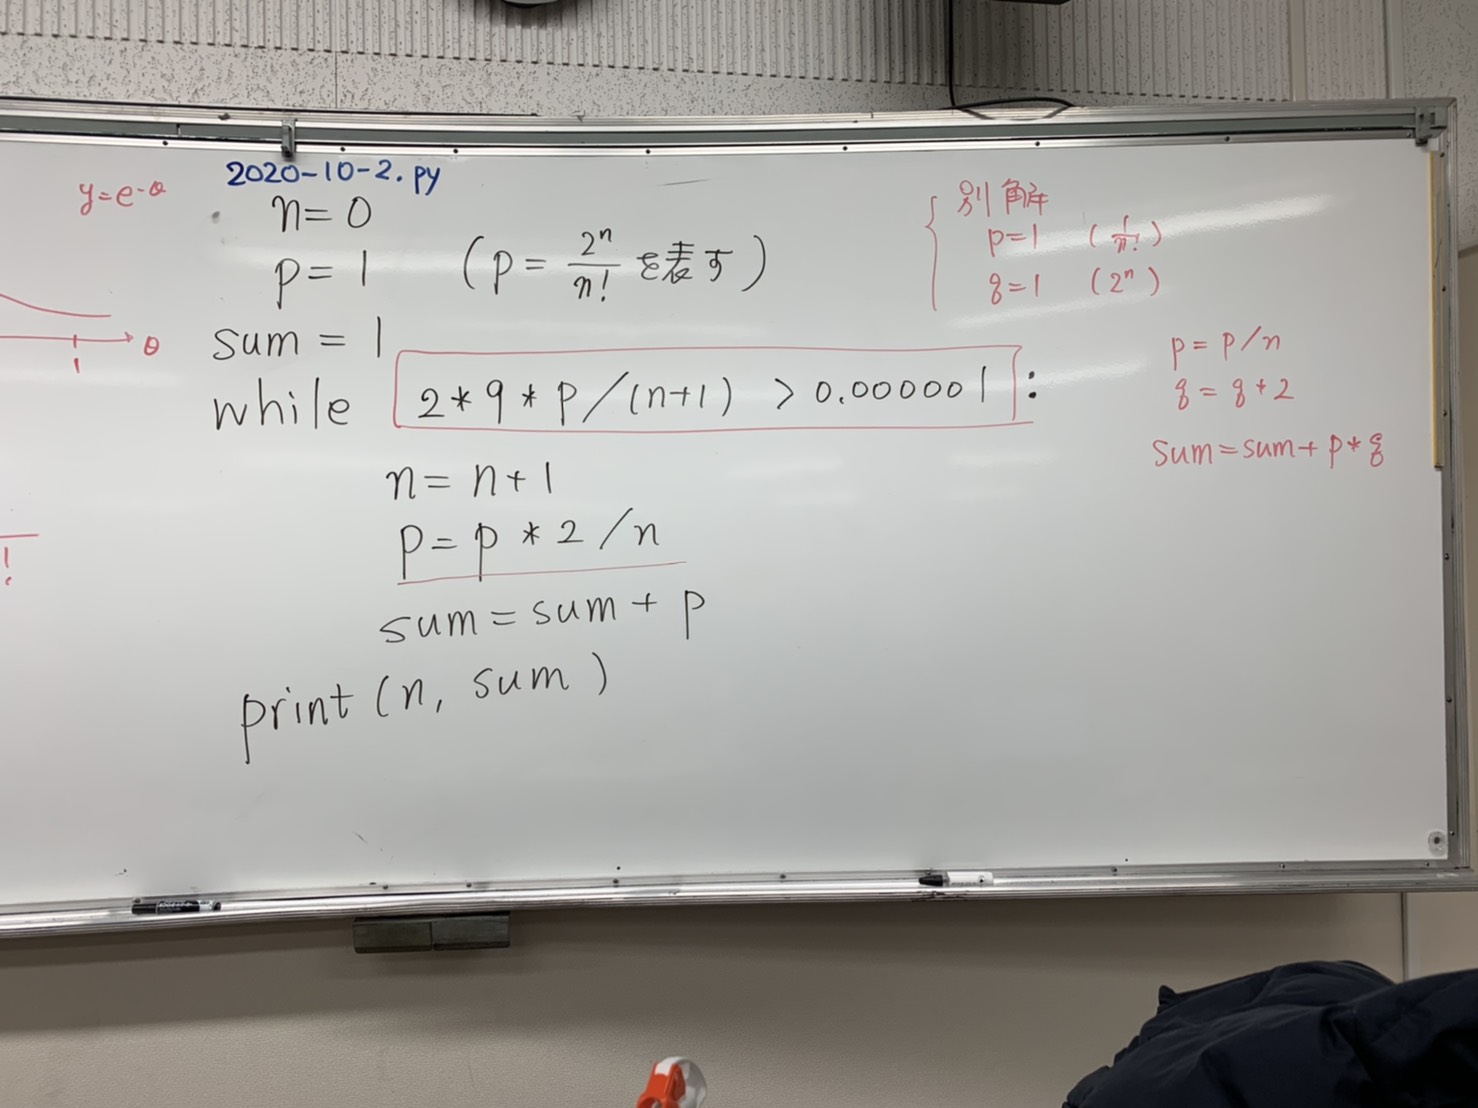 y=e-θ
θ
1
!
2020-10-2.py
n=0
p=1 (p=2ⁿ/n!を表す)
sum=1
while 2*9*p/(n+1) >0.000001:
n=n+1
p=p*2/n
sum=sum+p
print(n, sum)
別解
p=1 (1/n!)
q=1 (2ⁿ)
p=p/n
q=q*2
sum=sum+p*q